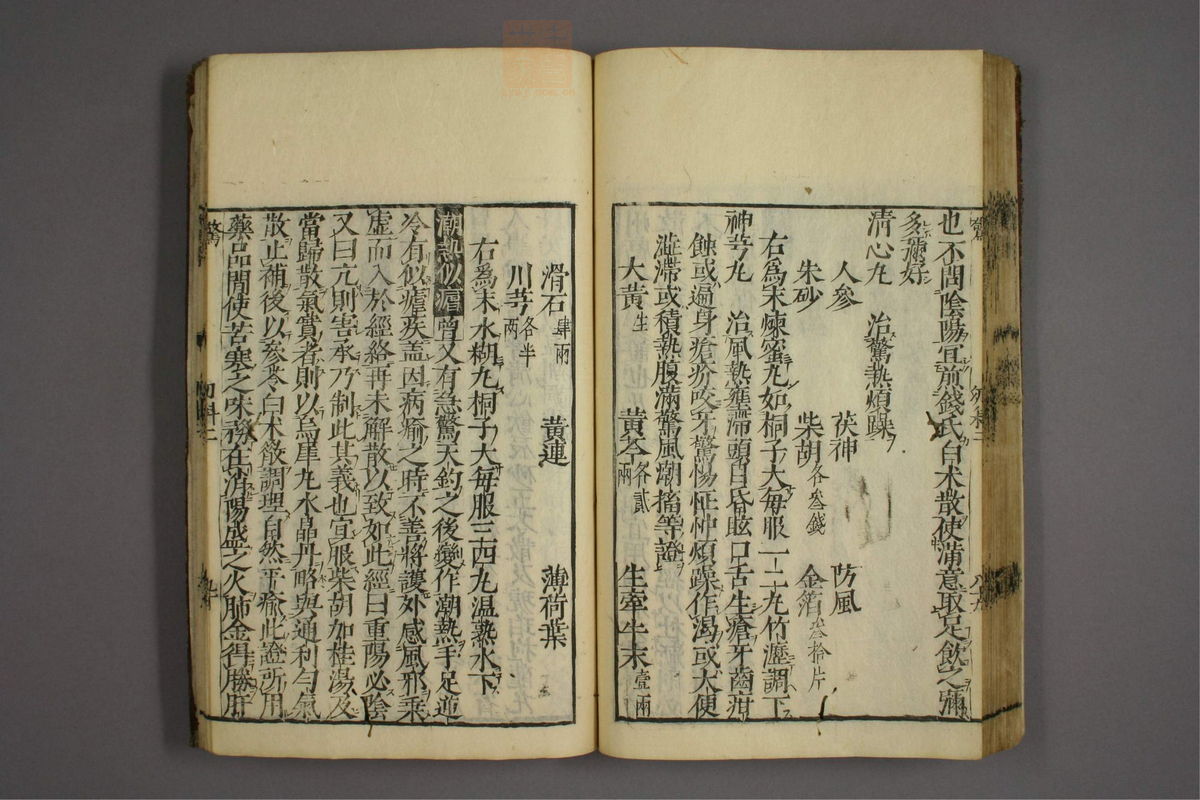 也不問陰陽宜煎錢氏白朮散使滿意取足飲之彌
多彌好
清心丸 治驚熱煩躁
人參 茯神 防風
朱砂 柴胡各叄錢 金箔叄拾片
右爲末煉蜜丸如桐子大每服一二丸竹瀝調下
神芎丸 治風熱壅滯頭目昏眩口舌生瘡牙齒疳
蝕或遍身瘡疥咬牙驚惕怔忡煩躁作渴或大便
澁滯或積熱腹滿驚風潮搐等證
大黃生 黃芩各貳兩 生牽牛末壹兩
滑石肆兩 黃連 薄荷葉
川芎各半兩
右爲末水糊丸桐子大每服三四丸温熟水下
潮熱似瘧曾又有急驚天釣之後變作潮熱手足逆
冷有似瘧疾蓋因病瘉之時不善將護外感風邪乘
虛而入於經絡再未解散以致如此經曰重陽必陰
又曰亢則害承乃制此其義也宜服柴胡加桂湯及
當歸散氣實者則以烏犀丸水晶丹略與通利勻氣
散止補後以參苓白朮散調理自然平瘉此證所用
藥品間使苦寒之味務在消陽盛之火肺金得勝肝